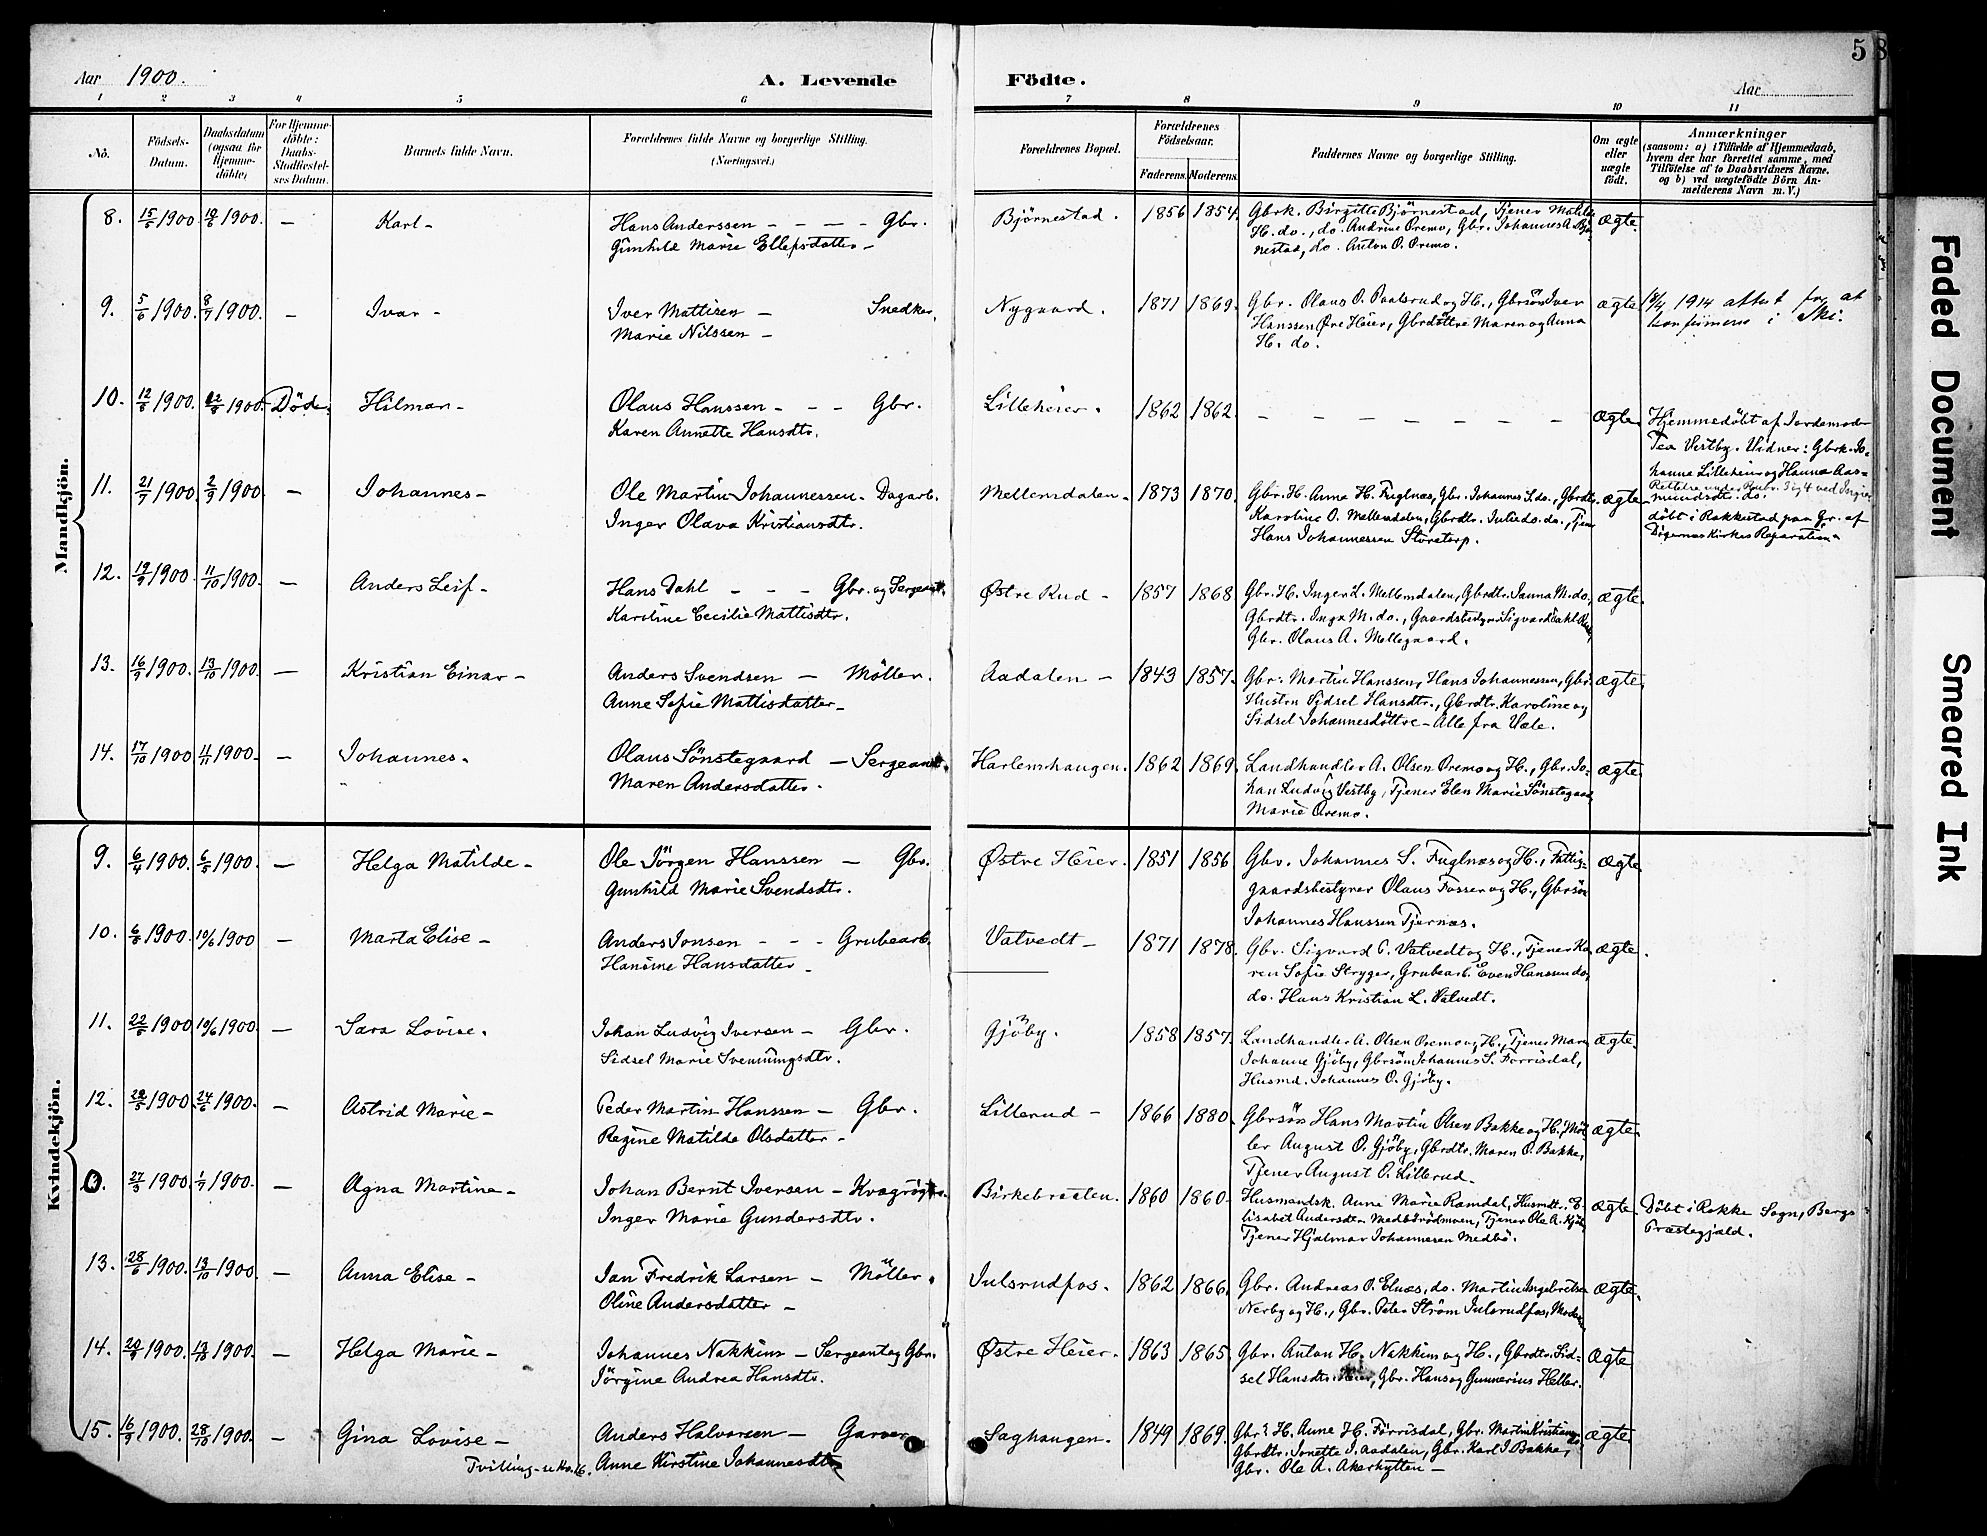 Aar 1900. A. Levende Födte. Aar 5
1 2 3 4 5 6 7 8 9 10 11
No. Födsels-Datum. Daabsdatum (ogsaa for Hjemme-döbte) For Hjemme-döbte: Daabs-Stadfæstel-ses Datum. Barnets fulde Navn. Forældrenes fulde Navne og borgerlige Stilling. (Næringsvei.) Forældrenes Bopæl. Forældrenes Födselsaar. Faderens. Moderens. Faddernes Navne og borgerlige Stilling. Om ægte eller uægte födt. Anmærkninger (saasom: a) i Tilfælde af Hjemmedaab, hvem der har forrettet samme, med Tilföielse af to Daabsvidners Navne, og b) ved uægtefödte Börn An-melderens Navn m. V.)
Mandkjön.
8. 15/5 1900 1900. — Karl - Hans Anderssen - - - - Gbr. Bjørnestad. 1856 1854. Gbrk. Birgitte Bjørnestad, Tjener Matilde ægte
Gunhild Marie Ellefsdatter - H. do., do. Andrine Oremo, Gbr. Johannes A. Bjø-
nestad, do. Anton O. Oremo.
9. 5/6 1900. 8/7 1900. - Ivar - Iver Mattisen - Snedker. Nygaard. 1871 1869. Gbr. Olaus O. Paalsrud og H., Gbrsön Iver ægte 1914 attest for at
Marie Nilssen - Hanssen Øre Heier, Gbrdöttre Maren og Anna konfirmeres i Ski.
H. do.
10. 12/8 1900. 1900. Döde. Hilmar - Olaus Hanssen - - - Gbr. Lilleheier. 1862 1862. - - - - - - ægte Hjemmedöbt af Jordemoder
Karen Annette Hansdtr. Tea Vestby. Vidner: Gbrk. Jo-
hanna Lilleheier og Hanna Aas-
mundsdtr. do.
11. 21/7 1900. 2/9 1900. - Johannes - Ole Martin Johannessen - Dagarb. Mellemdalen - 1873 1870. Gbr. H. Anne H. Fuglnæs, Gbr. Johannes S. do., Gbrdtr. ægte
Inger Olava Kristiansdtr. Karoline O. Mellemdalen, Gbrdtr. Julie do. do., Tjener döbt i Rakkestad paa Gr. af
Hans Johannessen Storetorp. Degernes Kirkes Reparation.
12. 19/9 1900 11/10 1900. - Anders Leif - Hans Dahl - - - Gbr. og Sergeant. Østre Rud - 1857 1868 Gbr. H. Inger L. Mellemdalen, Gbrdtr. Janna M. do., ægte.
Karoline Cecilie Mattisdtr. Gbrdtr. Inga M. do., Gaardsbestyrer Sigvard Dahl Rud,
Gbr. Olaus A. Mellegaard.
13. 16/9 1900 13/10 1900. - Kristian Einar - Anders Svendsen - Möller. Aadalen - 1843 1857. Gbr. Martin Hanssen, Hans Johannessen, Gbr. ægte.
Anne Sofie Mattisdatter - Hustru Sidsel Hansdtr., Gbrdtr. Karoline og
Sidsel Johannesdöttre - Alle fra Væle.
14. 17/10 1900 11/11 1900. - Johannes. Olaus Sönstegaard - Sergeant. Harlemshaugen. 1862 1869. Landhandler A. Olsen Oremo og H., Gbr. Jo- ægte.
Maren Andersdatter. han Ludvig Vestby, Tjener Elen Marie Sönstegaard
Marie Oremo.
Kvindekjön.
9. 6/4 1900. 6/5 1900. - Helga Matilde - Ole Jörgen Hanssen - Gbr. Østre Heier. 1851 1856 Gbr. Johannes S. Fuglnæs og H., Fattig- ægte
Gunhild Marie Svendsdtr. gaardsbestyrer Olaus Fosser og H., Gbrsön
Johannes Hanssen Tjernæs.
10. 6/5 1900. 10/6 1900 - Marta Elise - Anders Jonsen - - - Grubearb. Vatvedt - 1871 1878. Gbr. Sigvard C. Vatvedt og H., Tjener Ka- ægte.
Hansine Hansdatter - ren Sofie Stryger, Grubearb. Even Hanssen do,
do. Hans Kristian L. Vatvedt.
11. 22/5 1900 10/6 1900. - Sara Lovise. Johan Ludvig Iversen - Gbr. Gjöby. 1858 1857 Landhandler A. Olsen Oremo og H., Tjener Maren ægte.
Sidsel Marie Svenningsdtr. Johanne Gjöby, Gbrsön Johannes S. Forrisdal,
Husmd. Johannes O. Gjöby.
12. 28/5 1900 24/6 1900. - Astrid Marie - Peder Martin Hanssen - Gbr. Lillerud - 1866 1880. Gbrsön Hans Martin Olsen Bakke og H., Möl- ægte.
Regine Matilde Olsdatter - ler August O. Gjöby, Gbrdtr. Maren O. Bakke,
Tjener August O. Lillerud.
0. 27/5 1900. 1/7 1900. - Agna Martine - Johan Bernt Iversen - Kvægrögter. Birkebraaten. 1860 1860. Husmandsk. Anne Marie Ramdal, Husmdt. E- ægte. Döbt i Rokke Sogn, Bergs
Inger Marie Gundersdtr. lisabet Andersdtr. Medbö Tjener Ole A. Præstegjæld.
Tjener Hjalmar Johannesen Medbö.
13. 28/6 1900. 13/10 1900. - Anna Elise - Jan Fredrik Larsen - Möller. Julsrudfos. 1862 1866. Gbr. Andreas O. Elnæs, do. Martin Ingebretsen ægte.
Oline Andersdatter - Nerby og H., Gbr. Peter Ström Julsrudfos, Moderen.
14. 20/9 1900. 13/10 1900. - Helga Marie - Johannes Nakkim - Sergeant og Gbr. Østre Heier. 1863 1865. Gbr. Anton H. Nakkim og H., Gbrdtr. Sid- ægte
Jörgine Andrea Hansdtr. sel Hansdtr. Heier, Gbr. Hans og Gunnerius Heller.
15. 16/9 1900. 28/10 1900. - Gina Lovise - Anders Halvorsen - Garver Saghaugen. 1849 1869. Gbr. H. Anne H. Forrisdal, Gbr. Martin Kristians. do. ægte.
Tvilling - se No. 16. Anne Kirstine Johannesdtr. Gbrdtr. Jonette J. Aadalen, Gbr. Karl J. Bakke,
Gbr. Ole A. Akerhytten -
Faded Document
Smeared Ink